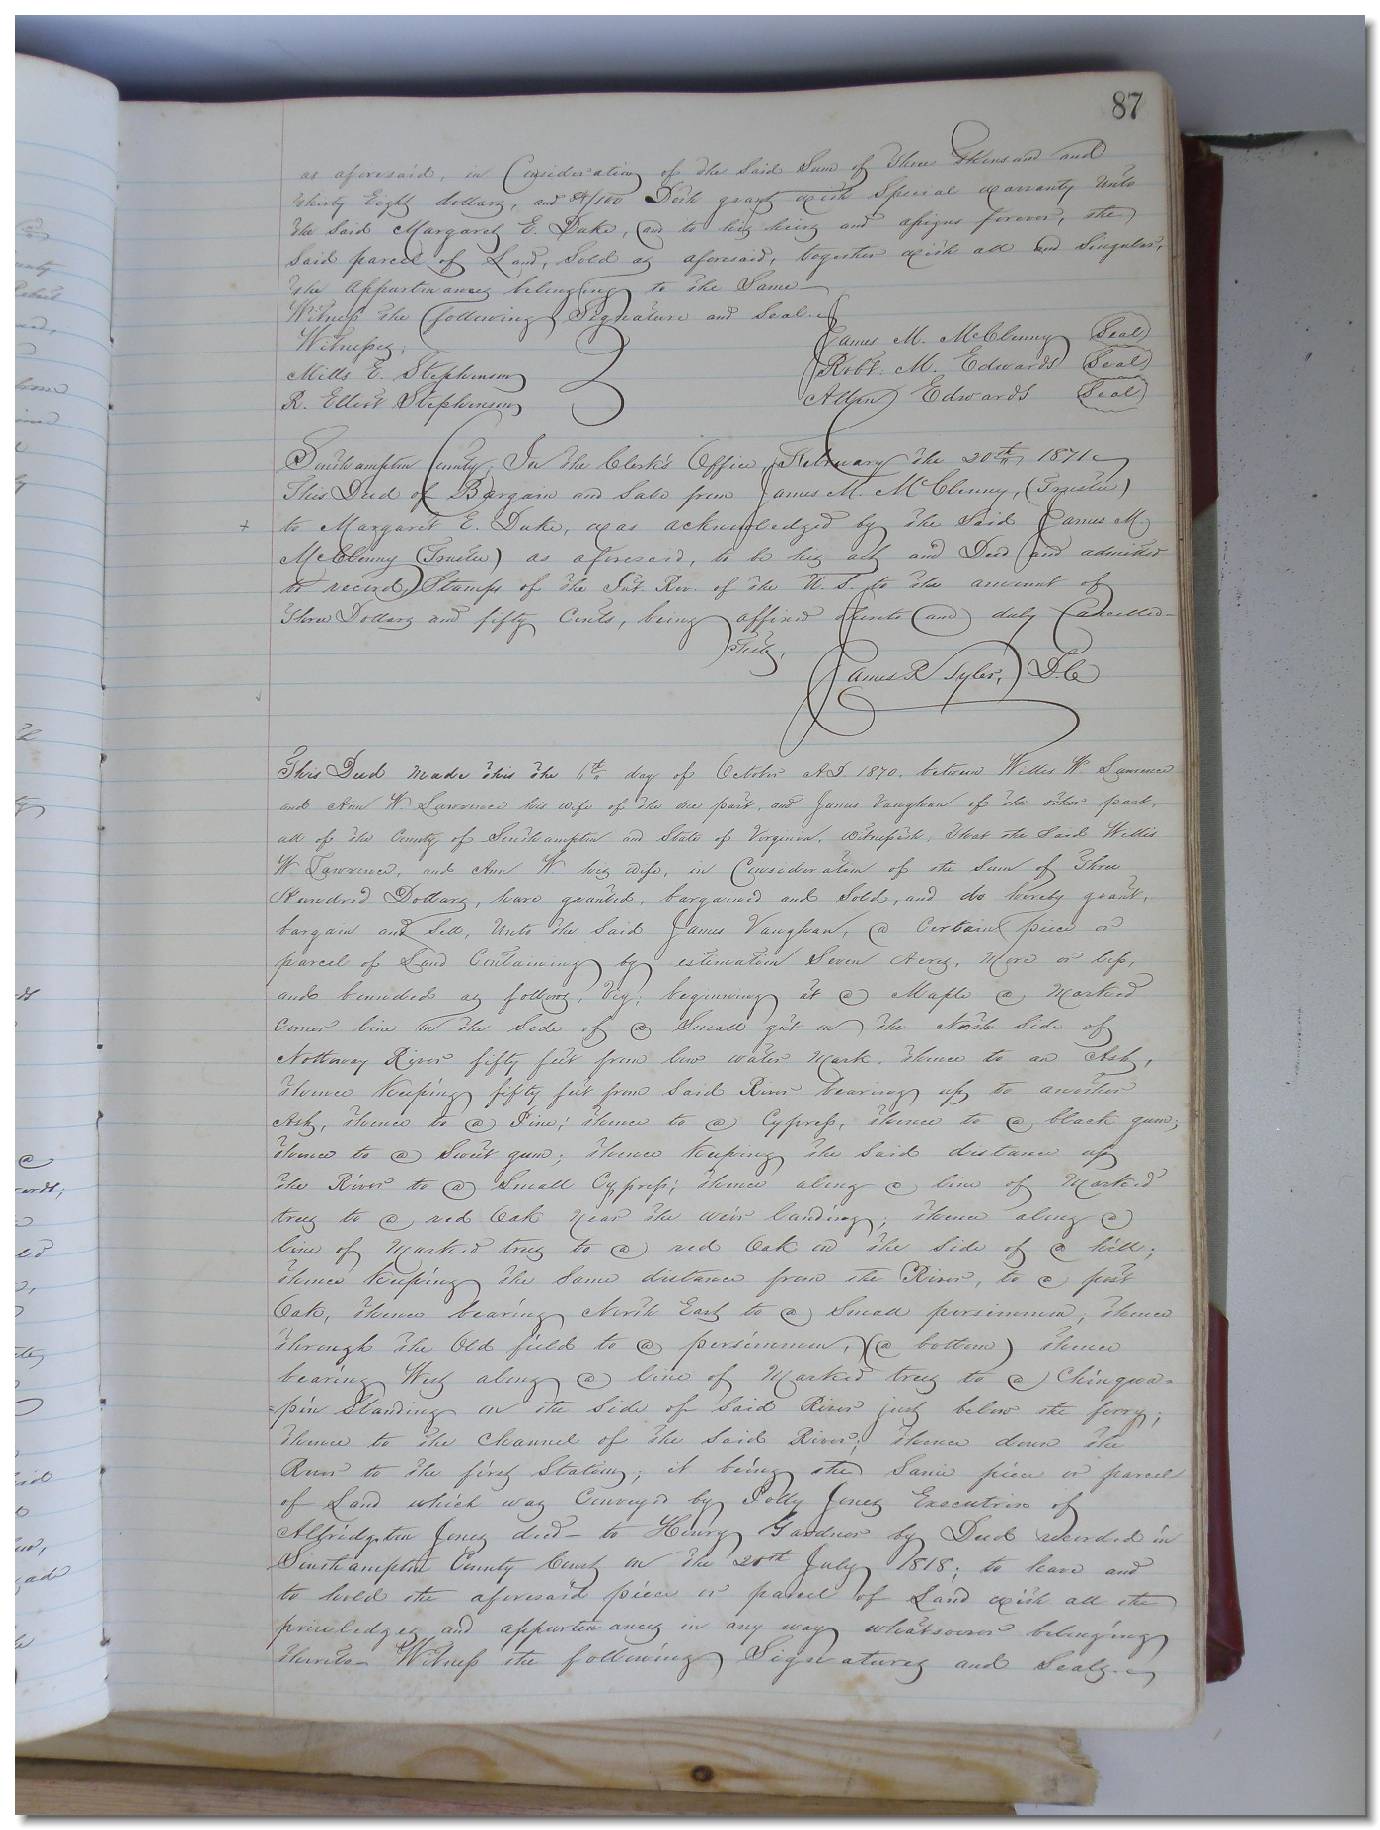 87
as aforesaid, in Consideration of the Said Sum of Three thousand and
thirty Eight dollars, and /100 Doth grant with Special warranty unto
the Said Margaret E. Duke, and to his heirs and assigns forever, the
Said parcel of Land, Sold as aforesaid, together with all and Singular,
the appurtenances belonging to the Same
Witness the following Signature and Seal.
Witnesses,
James M. McClenny (Seal)
Mills E. Stephenson
Robt. M. Edwards (Seal)
R. Elliott Stephenson
Allen Edwards (Seal)
Southampton County, In the Clerk's Office, February the 20th, 1871
This Deed of Bargain and Sale from James M. McClenny, (Trustee)
to Margaret E. Duke, was acknowledged by the Said James M.
McClenny (Trustee) as aforesaid, to be his act and Deed and admitted
to record, Stamps of the Int. Rev. of the U. S. to the amount of
Three Dollars and fifty Cents, being affixed thereto and duly Cancelled
Teste,
James R Tyler, D.C
This Deed made this the 6th day of October A.D 1870. between Willis W. Lawrence
and Ann W Lawrence his wife of the one part, and James Vaughan of the other part,
all of the County of Southampton and State of Virginia. Witnesseth, That the Said Willis
W. Lawrence, and Ann W his wife, in Consideration of the Sum of Three
Hundred Dollars, have granted, bargained and Sold, and do hereby grant,
bargain and Sell, Unto the Said James Vaughan, a Certain piece or
parcel of Land Containing by estimation Seven Acres, More or less,
and bounded as follows, Viz; beginning at a Maple a Marked
Corner line on the Side of a Small gut on the North Side of
Nottoway River fifty feet from low water Mark. thence to an Ash,
thence Keeping fifty feet from Said River bearing up to another
Ash, thence to a Pine; thence to a Cypress, thence to a black gum;
thence to a Sweet gum; thence Keeping the Said distance up
the River to a Small Cypress; thence along a line of Marked
trees to a red Oak Near the weir landing; thence along a
line of Marked trees to a red Oak on the Side of a hill;
thence Keeping the Same distance from the River, to a post
Oak, thence bearing North East to a Small persimmon, thence
through the Old field to a persimmon, (a bottom) thence
bearing West along a line of Marked trees to a Chinqua=
=pin Standing on the Side of Said River just below the ferry;
thence to the Channel of the Said River; thence down the
River to the first Station; it being the Same piece or parcel
of Land which was Conveyed by Polly Jones Executrix of
Albridgton Jones decd to Henry Gardner by Deed recorded in
Southampton County Court on the 20th July 1818; to have and
to hold the aforesaid piece or parcel of Land with all the
priviledges and appurtenances in any way whatsoever belonging
thereto Witness the following Signatures and Seals.